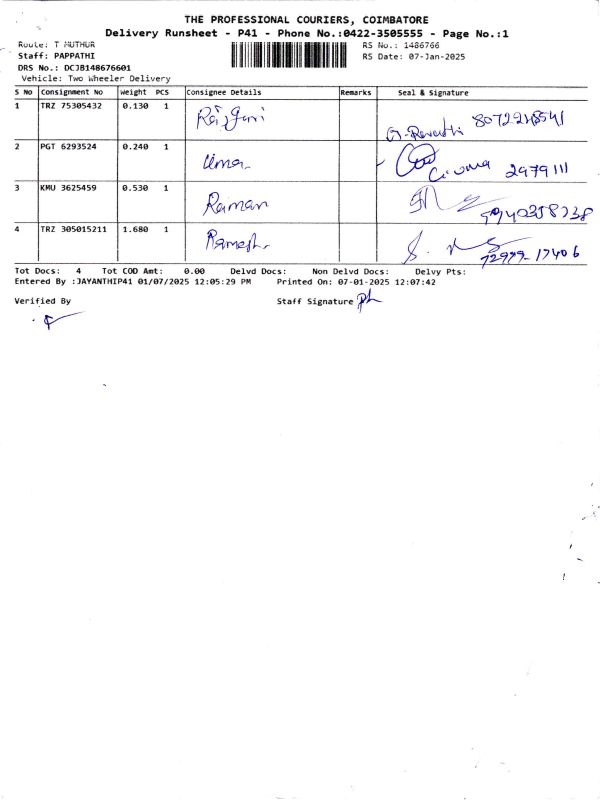 THE PROFESSIONAL COURIERS, COIMBATORE
Delivery Runsheet - P41 - Phone No.:0422-3505555 - Page No.:1
Route: T MUTHUR RS No.: 1486766
Staff: PAPPATHI RS Date: 07-Jan-2025
DRS No.: DCJB148676601
Vehicle: Two Wheeler Delivery
S No Consignment No Weight PCS Consignee Details Remarks Seal & Signature
1 TRZ 75305432 0.130 1
G. Revathi
2 PGT 6293524 0.240 1 Uma C. Uma 2979111
3 KMU 3625459 0.530 1 Raman
4 TRZ 305015211 1.680 1 Ramesh 72999-17406
Tot Docs: 4 Tot COD Amt: 0.00 Delvd Docs: Non Delvd Docs: Delvy Pts:
Entered By :JAYANTHIP41 01/07/2025 12:05:29 PM Printed On: 07-01-2025 12:07:42
Verified By Staff Signature